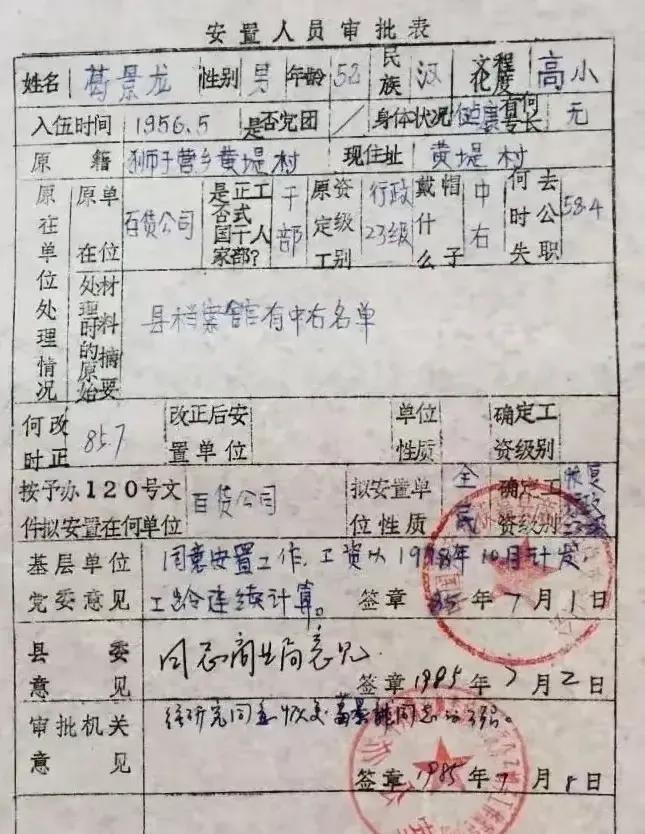 安置人员审批表
姓名 葛景龙 性别 男 年龄 52 民族 汉 文化程度 高小
入伍时间 1956.5 是否党团 / 身体状况 健康 有何专长 无
原籍 狮子营乡黄堤村 现住址 黄堤村
原在单位处理情况 原单位在 百货公司 是否正式国家干部?工人 干部 原定工资级别 行政23级 戴什么帽子 中右 何时失去公职 58.4
处理时的原始材料摘要 县档案馆有中右名单
何时改正 85.7 改正后安置单位 单位性质 确定工资级别
按予办120号文件拟安置在何单位 百货公司 拟安置单位性质 全民 确定工资级别 恢复
基层单位党委意见 同意安置工作、工资以1978年10月计发
工令连续计算。 签章 85年7月1日
县委意见 同意商业局意见 签章 1985年7月2日
审批机关意见 经研究同意恢复葛景龙同志
签章 1985年7月8日